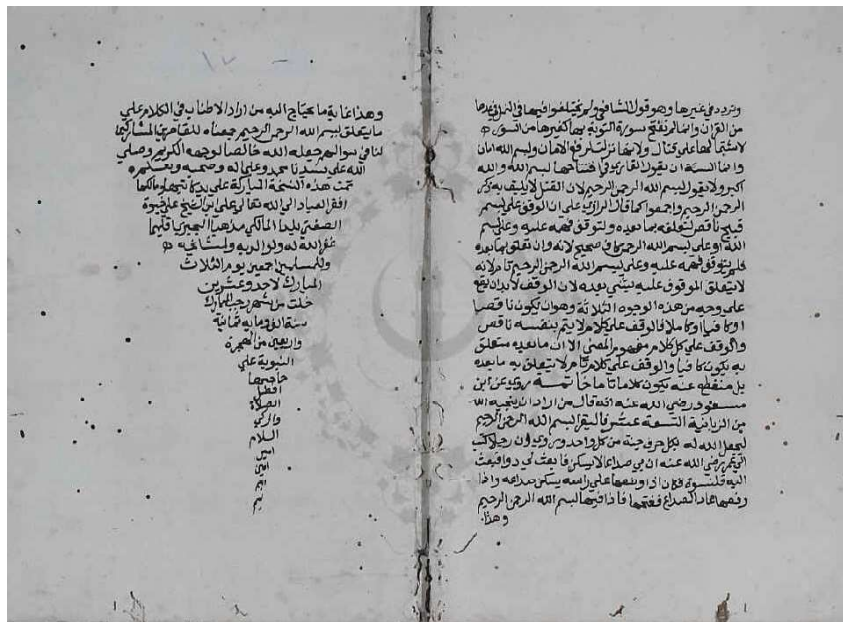 وتردد في غيرها وهو قول الشافعي ولم يختلفوا فيها في النمل في عدها
من القران وانما لم تفتح سورة التوبة بها كغيرها من السور
لاشتمالها على قتال ولانها نزلت لرفع الامان وبسم الله امان
وانما السنة ان يقول القاري في افتتاحها بسم الله والله
اكبر ولا يقول بسم الله الرحمن الرحيم لان القتل لا يليق به ذكر
الرحمن الرحيم واجمعوا كما قال الرازي على ان الوقف على بسم
قبيح ناقص لتعلقه بما بعده ولتوقف فهمه عليه وعلى بسم
الله او على بسم الله الرحمن كاف صحيح لانه وان تعلق بما بعده
فلم يتوقف فهمه عليه وعلى بسم الله الرحمن الرحيم تام لانه
لا يتعلق الموقوف عليه بشي بعده لان الوقف لابد ان يقع
على وجه من هذه الوجوه الثلاثة وهو ان يكون ناقصا
او كافيا او كاملا فالوقف على كلام لا يتم بنفسه ناقص
والوقف على كل كلام مفهوم المعنى الا ان ما بعده متعلق
به يكون كافيا والوقف على كل كلام تام لا يتعلق به ما بعده
بل منقطع عنه يكون كلاما تاما خاتمة روي عن ابن
مسعود رضي الله عنه انه قال من اراد ان ينجيه الله
من الزبانية التسعة عشر فاليقرا بسم الله الرحمن الرحيم
ليجعل الله له بكل حرف جنة من كل واحد وروي ان رجلا كتب
الى عمر رضي الله عنه ان بي صداعا لا يسكن فابعث لي دوا فبعث
اليه قلنسوة فكان اذا وضعها على راسه يسكن صداعه واذا
رفعها عاد الصداع ففتحها فاذا فيها بسم الله الرحمن الرحيم
وهذا
وهذا غاية ما يحتاج اليه من اراد الاطناب في الكلام على
ما يتعلق ببسم الله الرحمن الرحيم جمعناه للقاصرين المشاركين
لنا في سوالهم جعله الله خالصا لوجهه الكريم وصلى
الله على سيدنا محمد وعلى اله وصحبه وسلم
تمت هذه النسخة المباركة على يد كاتبها ومالكها
افقر العباد الى الله تعالى علي ابن الشيخ علي
بلدا المالكي مذهبا
غفر الله له ولوالديه ولمشايخه
وللمسلمين اجمعين يوم الثلاث
المبارك لاحد وعشرين
خلت من شهر رجب المبارك
سنة الف ومايه ثمانية
واربعين من الهجرة
النبوية على
صاحبها
افضل
الصلاة
وازكى
السلام
امين
امين
امين